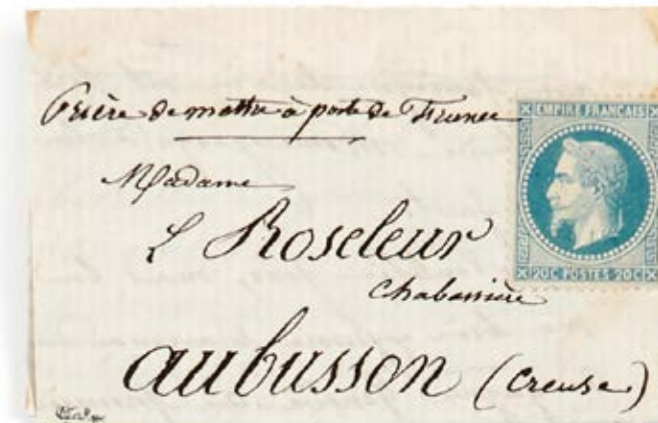 Prière de mettre à poste de France
EMPIRE FRANCAIS
20C POSTES 20C
Madame
L Roseleur
Chabassière
aubusson (Creuse)